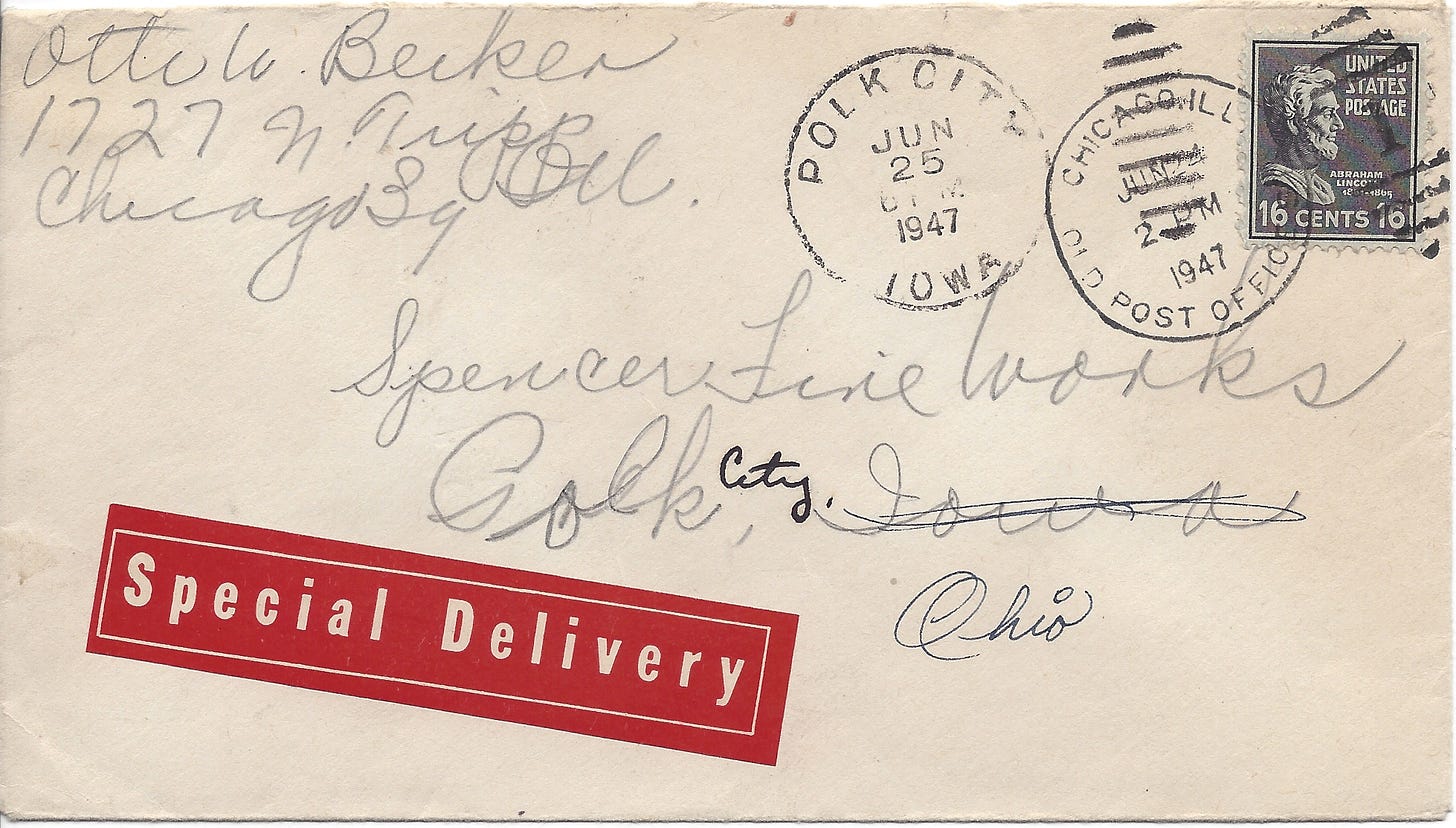 Otto W. Becker
1727 N. Tripp
Chicago 39 Ill.
POLK CITY
JUN
25
1947
IOWA
CHICAGO, ILL
JUN 24
2 PM
1947
OLD POST OFFICE
UNITED
STATES
POSTAGE
ABRAHAM
LINCOLN
16 CENTS 16
Spencer Fire Works
Polk City, Iowa
Ohio
Special Delivery